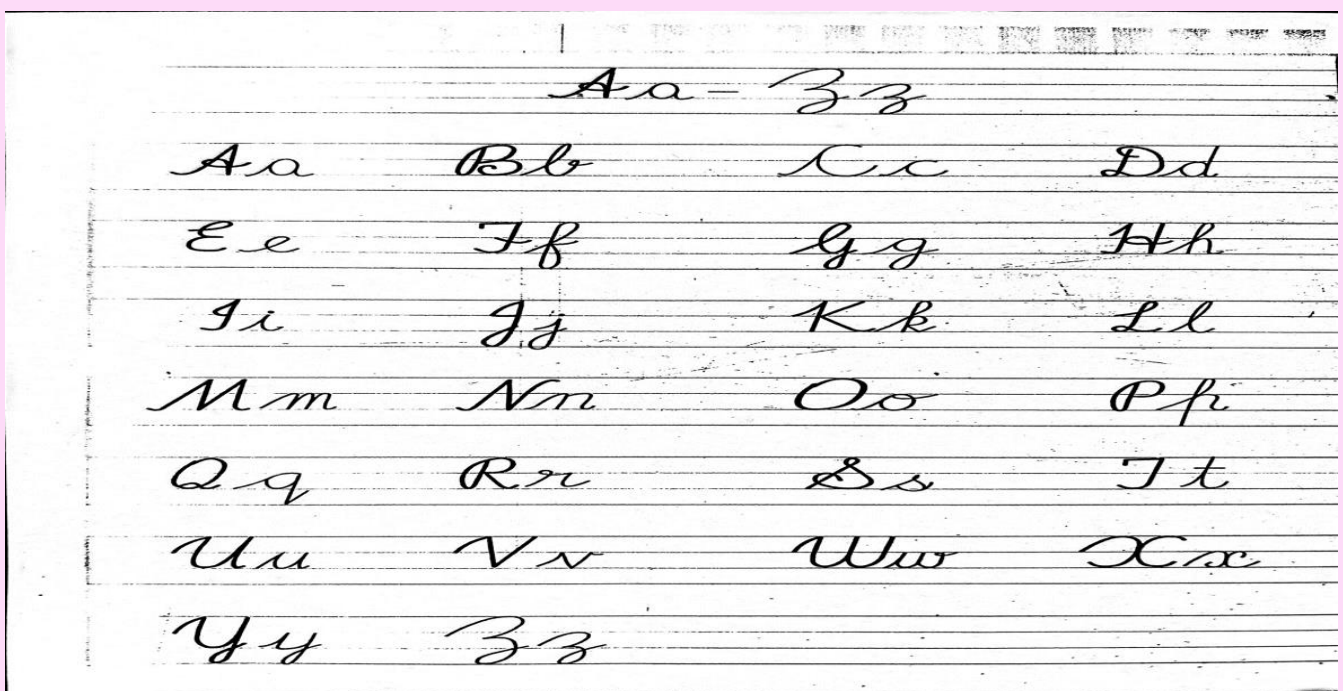 Aa - Zz
Aa Bb Cc Dd
Ee Ff Gg Hh
Ii Jj Kk Ll
Mm Nn Oo Pp
Qq Rr Ss Tt
Uu Vv Ww Xx
Yy Zz